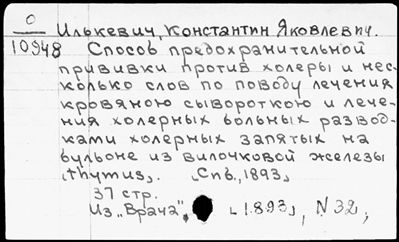 О
10948
Илькевич, Константин Яковлевич.
Способ предохранительной
прививки против холеры и нес-
колько слов по поводу лечения
кровяною сывороткою и лече-
ния холерных больных развод-
ками холерных запятых на
бульоне из вилочковой железы
(thymus). [Спб., 1893]
37 стр.
Из „Врача“, [1893], N 32,